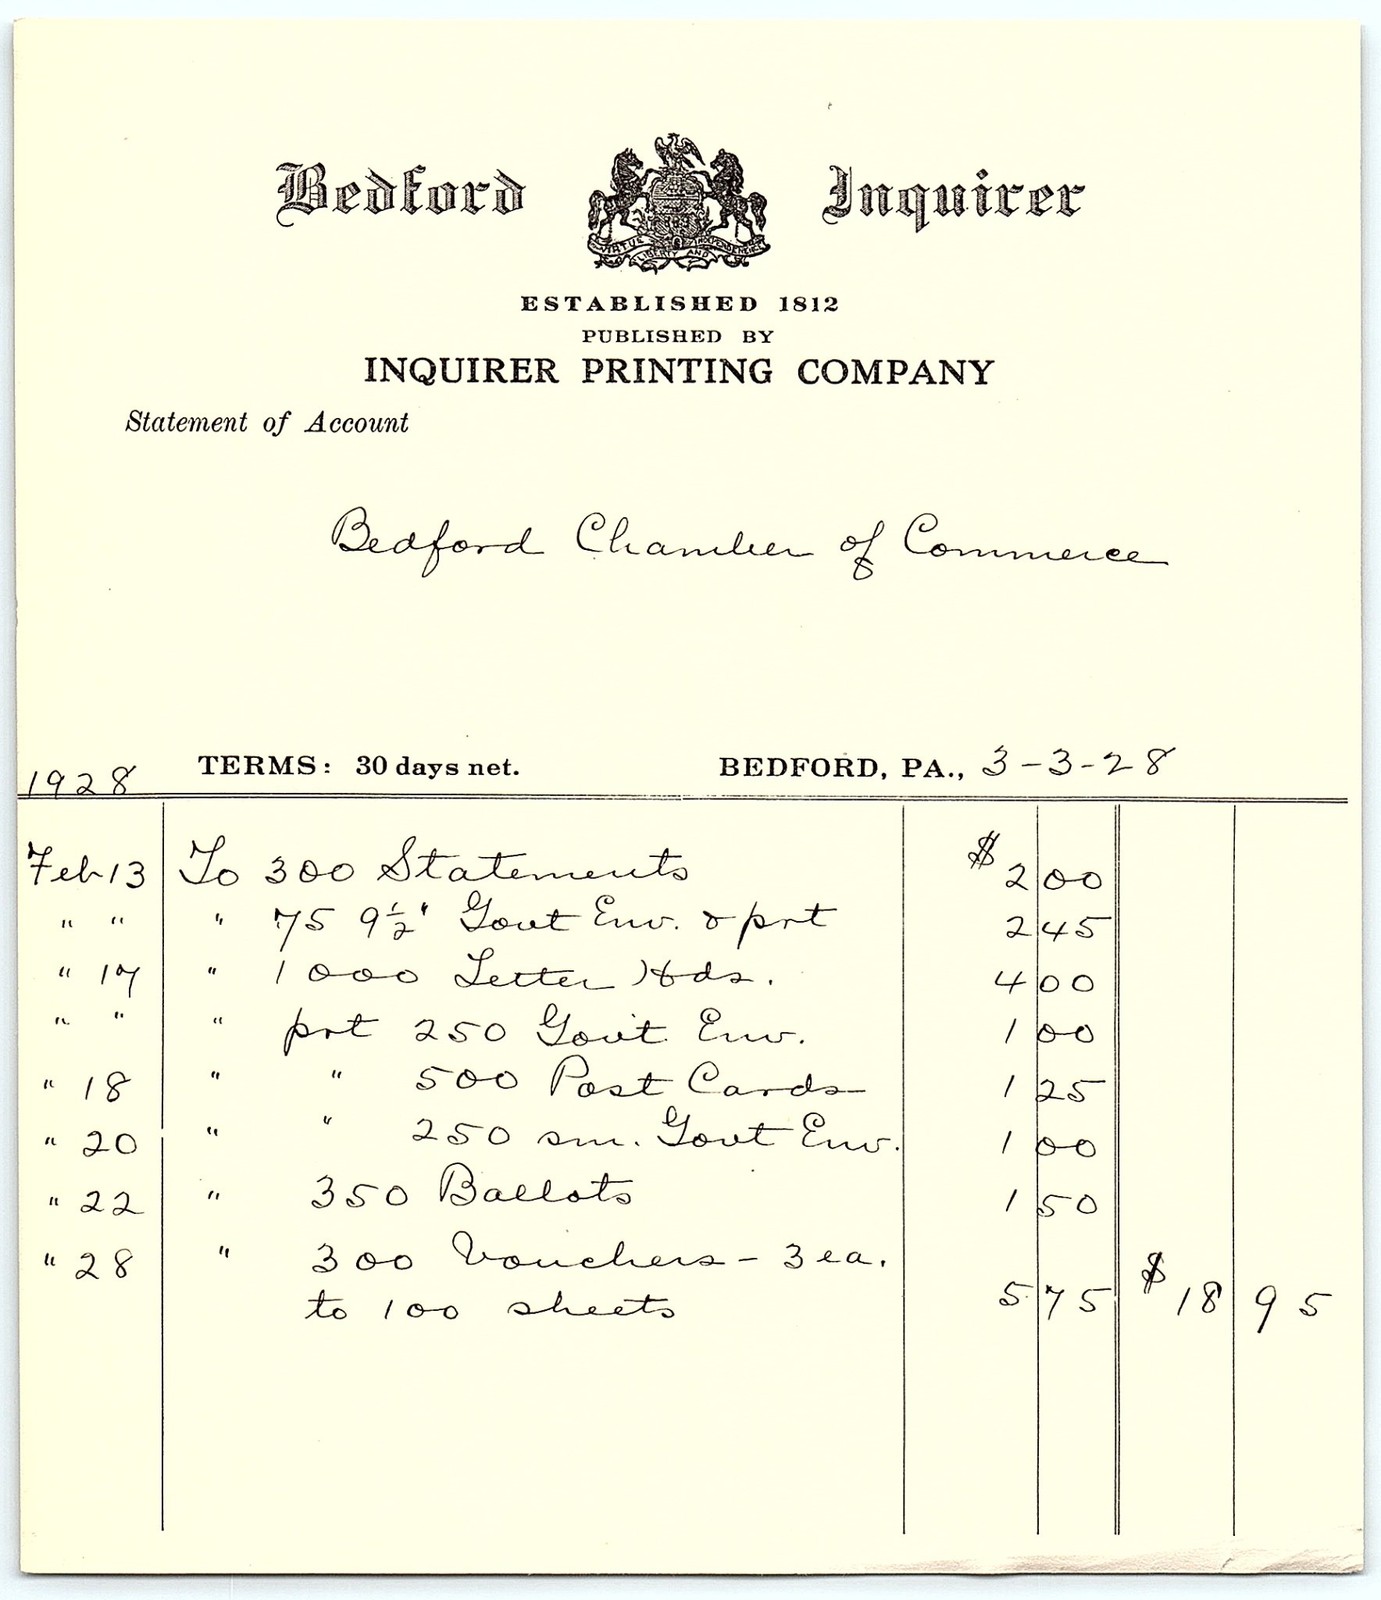 Bedford Inquirer
VIRTUE LIBERTY AND INDEPENDENCE
ESTABLISHED 1812
PUBLISHED BY
INQUIRER PRINTING COMPANY
Statement of Account
Bedford Chamber of Commerce
1928 TERMS: 30 days net. BEDFORD, PA., 3-3-28
Feb 13 To 300 Statements $2 00
" " " 75 9½" Govt Env. & prt 2 45
" 17 " 1000 Letter Hds. 4 00
" " " prt 250 Govt Env. 1 00
" 18 " " 500 Post Cards 1 25
" 20 " " 250 sm. Govt Env. 1 00
" 22 " 350 Ballots 1 50
" 28 " 300 Vouchers - 3 ea.
to 100 sheets 5 75 $18 95